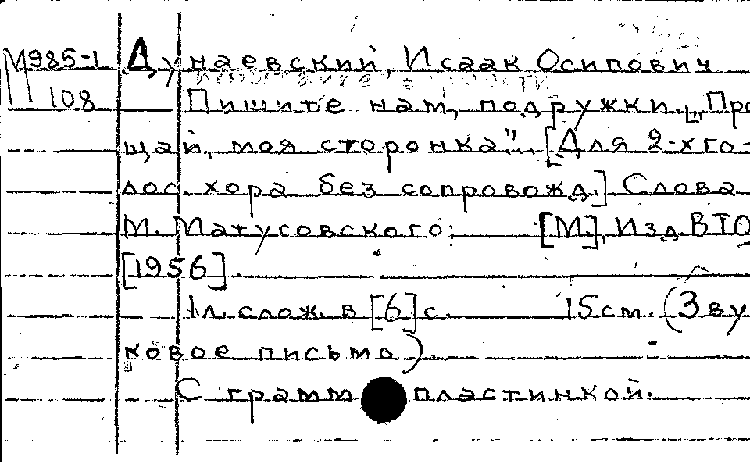 М985-1 Дунаевский, Исаак Осипович
108 Пишите нам, подружки. "Про-
щай, моя сторонка". [Для 2-хго-
лос. хора без сопровожд.] Слова
М. Матусовского. [М], Изд. ВТО
[1956].
1л. слож. в [6] с. 15см. (Зву
ковое письмо).
С грамм пластинкой.